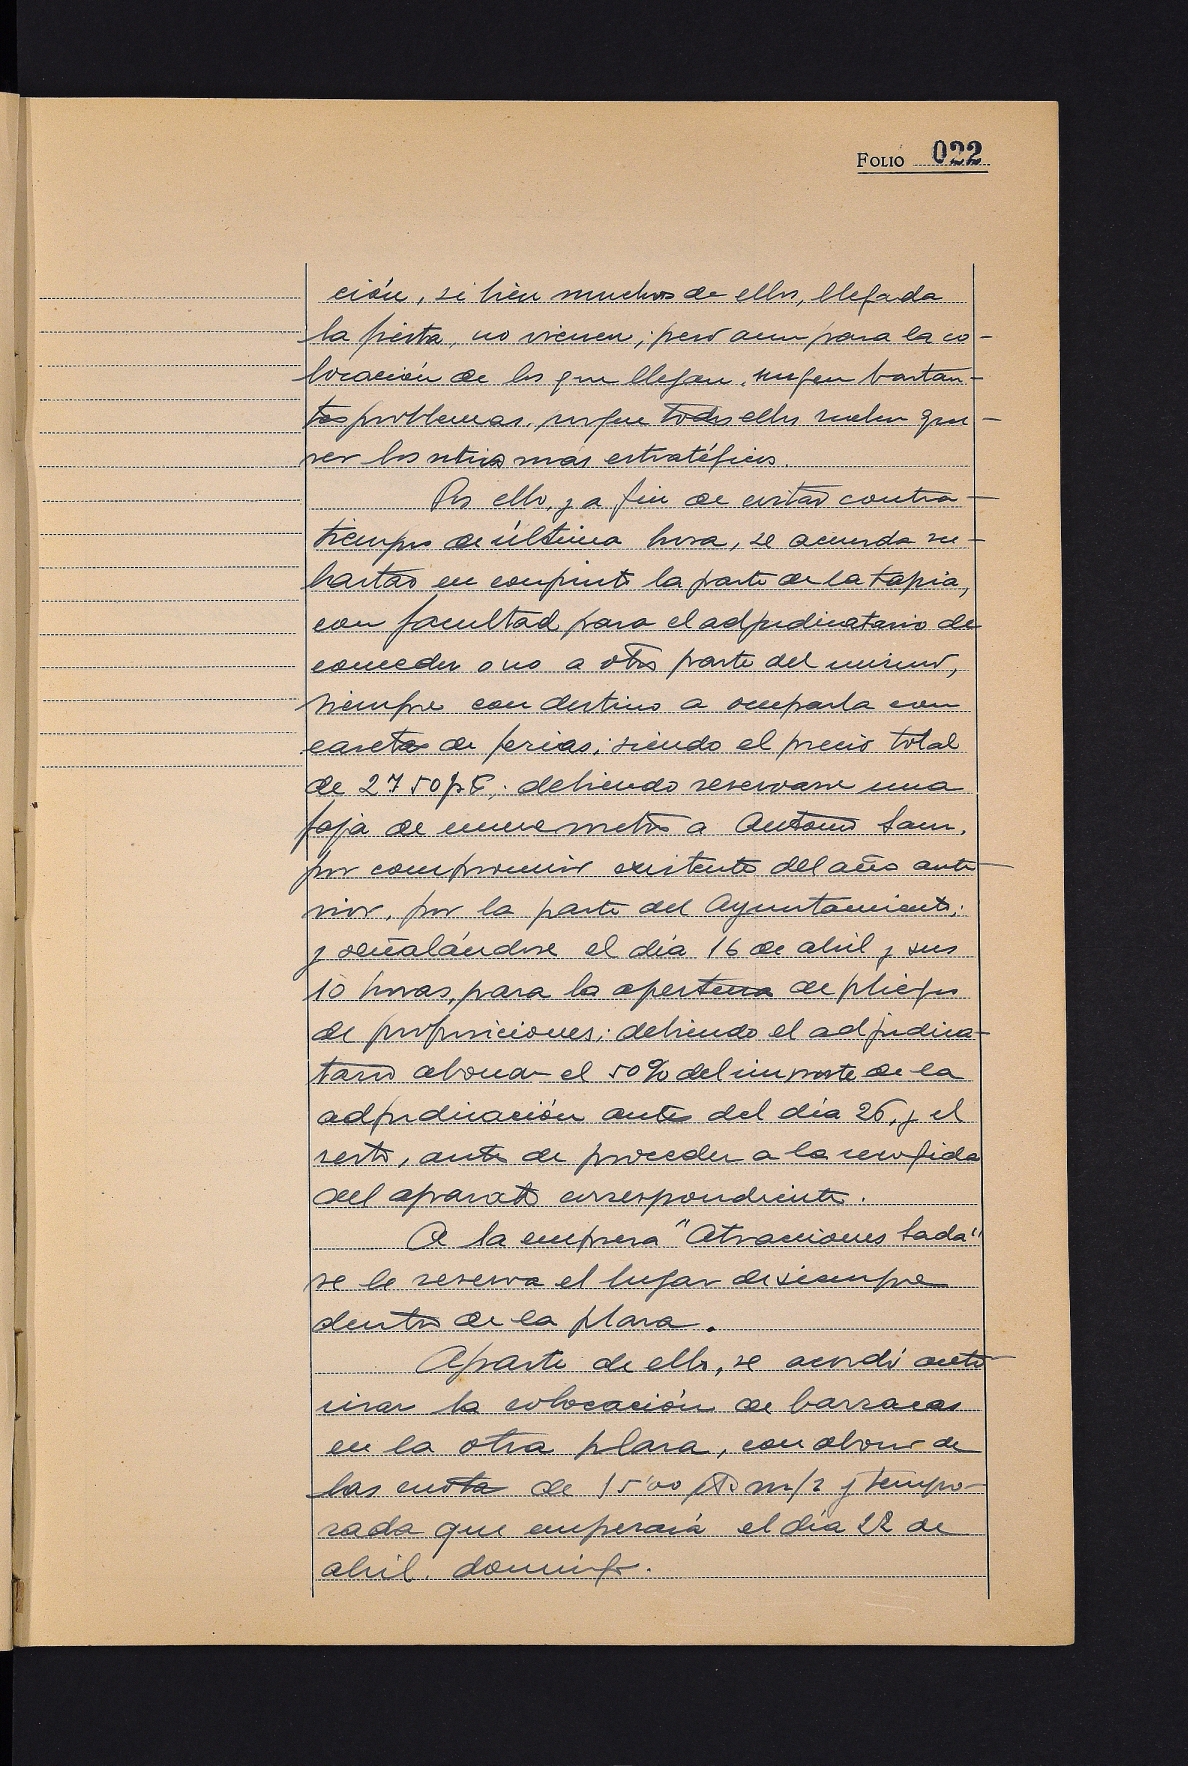 FOLIO 022
ción, si bien muchos de ellos, llegada
la fiesta, no vienen; pero aun para la co-
locación de los que llegan, surgen bastan-
tes problemas, porque todos ellos suelen que-
rer los sitios mas estratégicos.
Por ello, y a fin de evitar contra-
tiempos de última hora, se acuerda su-
bastar en conjunto la parte de la tapia,
con facultad para el adjudicatario de
conceder o no a otros parte del mismo,
siempre con destino a ocuparla con
casetas de ferias; siendo el precio total
de 2750 pts; debiendo reservarse una
faja de nueve metros a Antonio Sanz.
por compromiso existente del año ante-
rior, por la parte del Ayuntamiento;
y señalándose el día 16 de abril y sus
10 horas, para la apertura de pliegos
de proposiciones; debiendo el adjudica-
tario abonar el 50% del importe de la
adjudicación antes del día 26, y el
resto, antes de proceder a la recogida
del aparato correspondiente.
A la empresa "Atracciones Sada"
se le reserva el lugar de siempre
dentro de la plaza.
Aparte de ello, se acordó auto-
rizar la colocación de barracas
en la otra plaza, con abono de
las cuotas de 15'00 pts m/2 y tempo-
rada que empezará el día 22 de
abril, domingo.